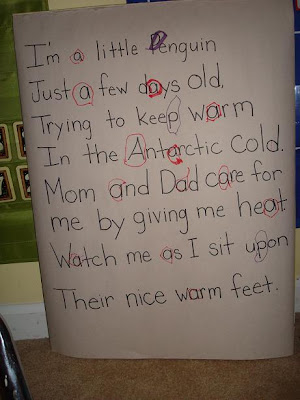 I'm a little Penguin
Just a few days old,
Trying to keep warm
In the Antarctic Cold.
Mom and Dad care for
me by giving me heat
Watch me as I sit upon
Their nice warm feet.